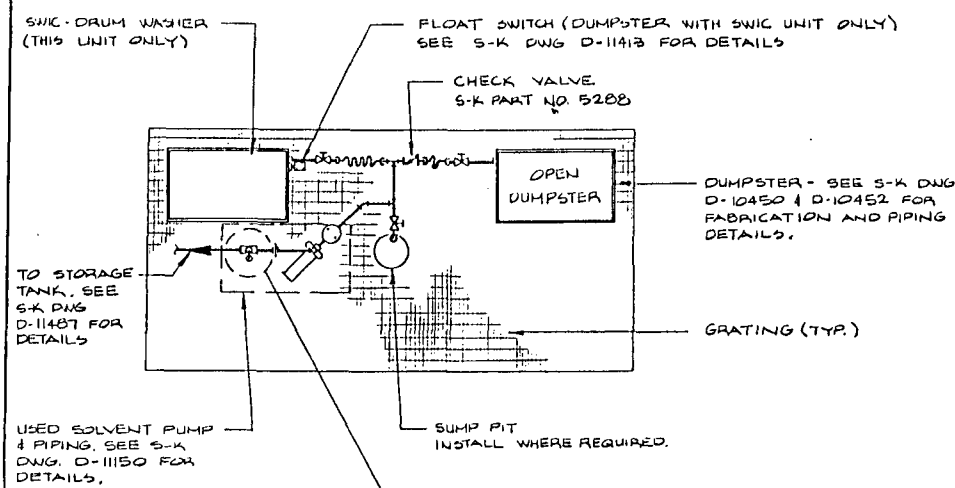 SWIC-DRUM WASHER
(THIS UNIT ONLY)
FLOAT SWITCH (DUMPSTER WITH SWIC UNIT ONLY)
SEE S-K DWG D-11413 FOR DETAILS
CHECK VALVE
S-K PART NO. 5288
OPEN
DUMPSTER
DUMPSTER - SEE S-K DWG
D-10450 & D-10452 FOR
FABRICATION AND PIPING
DETAILS.
TO STORAGE
TANK. SEE
S-K DWG
D-11487 FOR
DETAILS
GRATING (TYP.)
USED SOLVENT PUMP
& PIPING. SEE S-K
DWG. D-11150 FOR
DETAILS.
SUMP PIT
INSTALL WHERE REQUIRED.